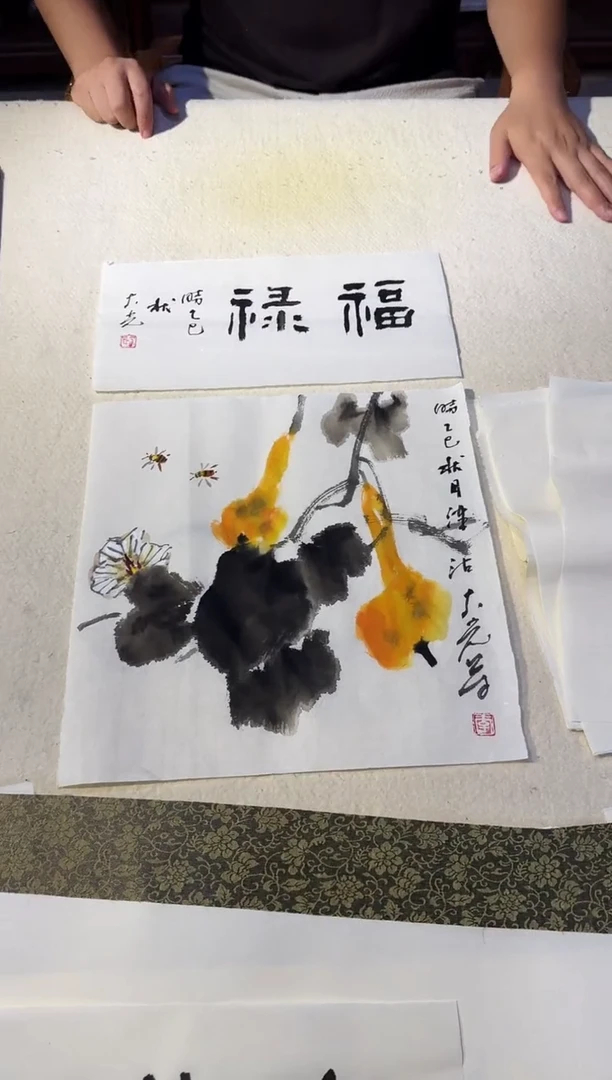 福禄
時乙巳
秋
大光
時乙巳秋月漆沽大光写